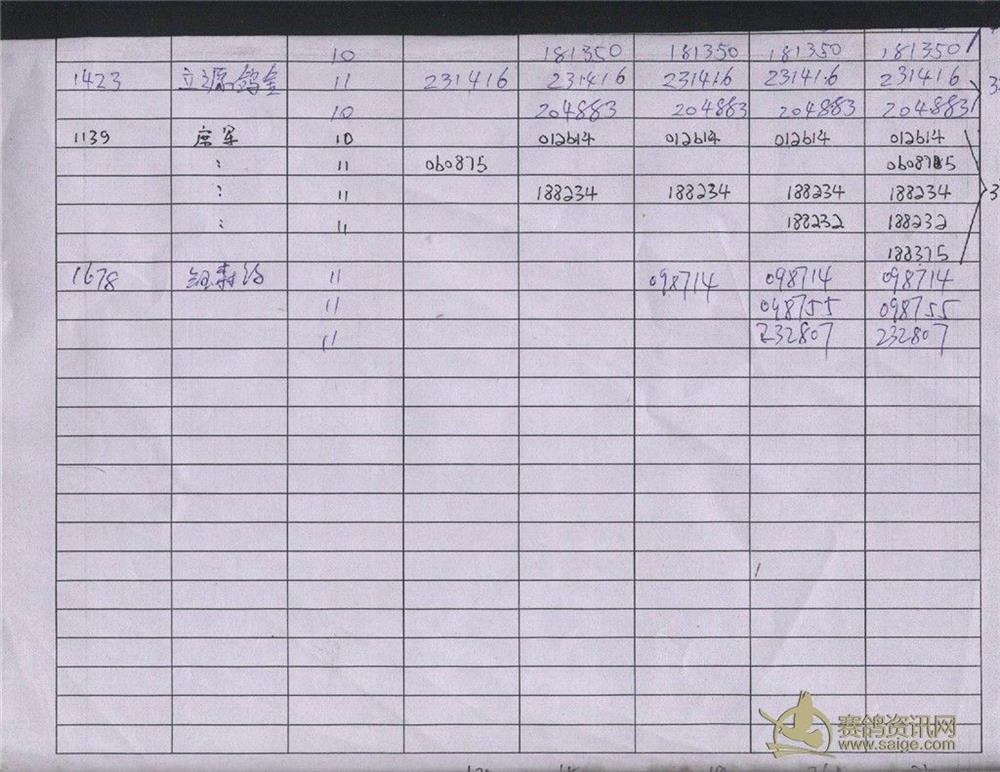 10 181350 181350 181350 181350
1423 立源鸽舍 11 231416 231416 231416 231416 231416
10 204883 204883 204883 204883
1139 席军 10 012614 012614 012614 012614
: 11 060875 060875
: 11 188234 188234 188234 188234
: 11 188232 188232
188375
1678 11 098714 098714 098714
11 098755 098755
11 232807 232807
赛鸽资讯网
www.saige.com